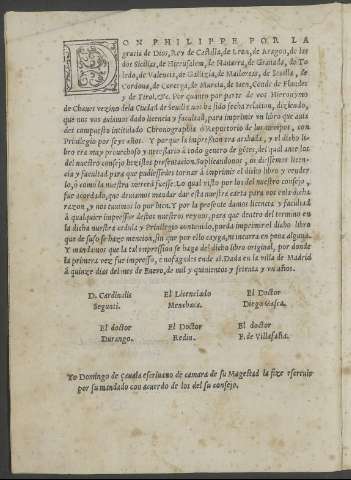 DON PHILIPPE POR LA
gracia de Dios, Rey de Castilla, de Leon, de Aragon, de las
dos Sicilias, de Hierusalem, de Nauarra, de Granada, de To
ledo, de Valencia, de Galizia, de Mallorcas, de Seuilla, de
Cordoua, de Corcega, de Murcia, de Iaen, Conde de Flandes
y de Tirol, &c. Por quanto por parte de vos Hieronymo
de Chaues vezino dela Ciudad de Seuilla nos ha sido fecha relacion, diziendo,
que nos vos auimos dado licencia y facultad, para imprimir vn libro que auia
des compuesto intitulado Chronographia o Repertorio de los tiempos, con
Priuilegio por seys años. Y porque la impression era acabada, y el dicho li-
bro era muy prouechoso y necessario à todo genero de gētes, del qual ante los
del nuestro consejo hezistes presentacion. Suplicandonos, os diessemos licen-
cia y facultad para que pudiessedes tornar à imprimir el dicho libro y vender
lo, ò como la nuestra merced fuesse. Lo qual visto por los del nuestro consejo,
fue acordado, que deuiamos mandar dar esta nuestra carta para vos enla dicha
razon, y nos tuuimos lo por bien. Y por la presente damos licencia y facultad
à qualquier impressor destos nuestros reynos, para que dentro del termino en
la dicha nuestra cedula y Priuilegio contenido, pueda imprimir el dicho libro
que de suso se haze mencion, sin que por ello cayga, ni incurra en pena alguna.
Y mandamos que la tal impression se haga del dicho libro original, por donde
la primera vez fue impresso, e no fagades ende al. Dada en la villa de Madrid
à quinze dias del mes de Enero, de mil y quinientos y setenta y vn años.
D. Cardinalis El Licenciado El Doctor
Segunti. Menchaca. Diego Gasca.
El doctor El Doctor. El doctor
Durango. Redin. F. de Villafaña.
Yo Domingo de Çauala escriuano de camara de su Magestad la fize escreuir
por su mandado con acuerdo de los del su consejo.